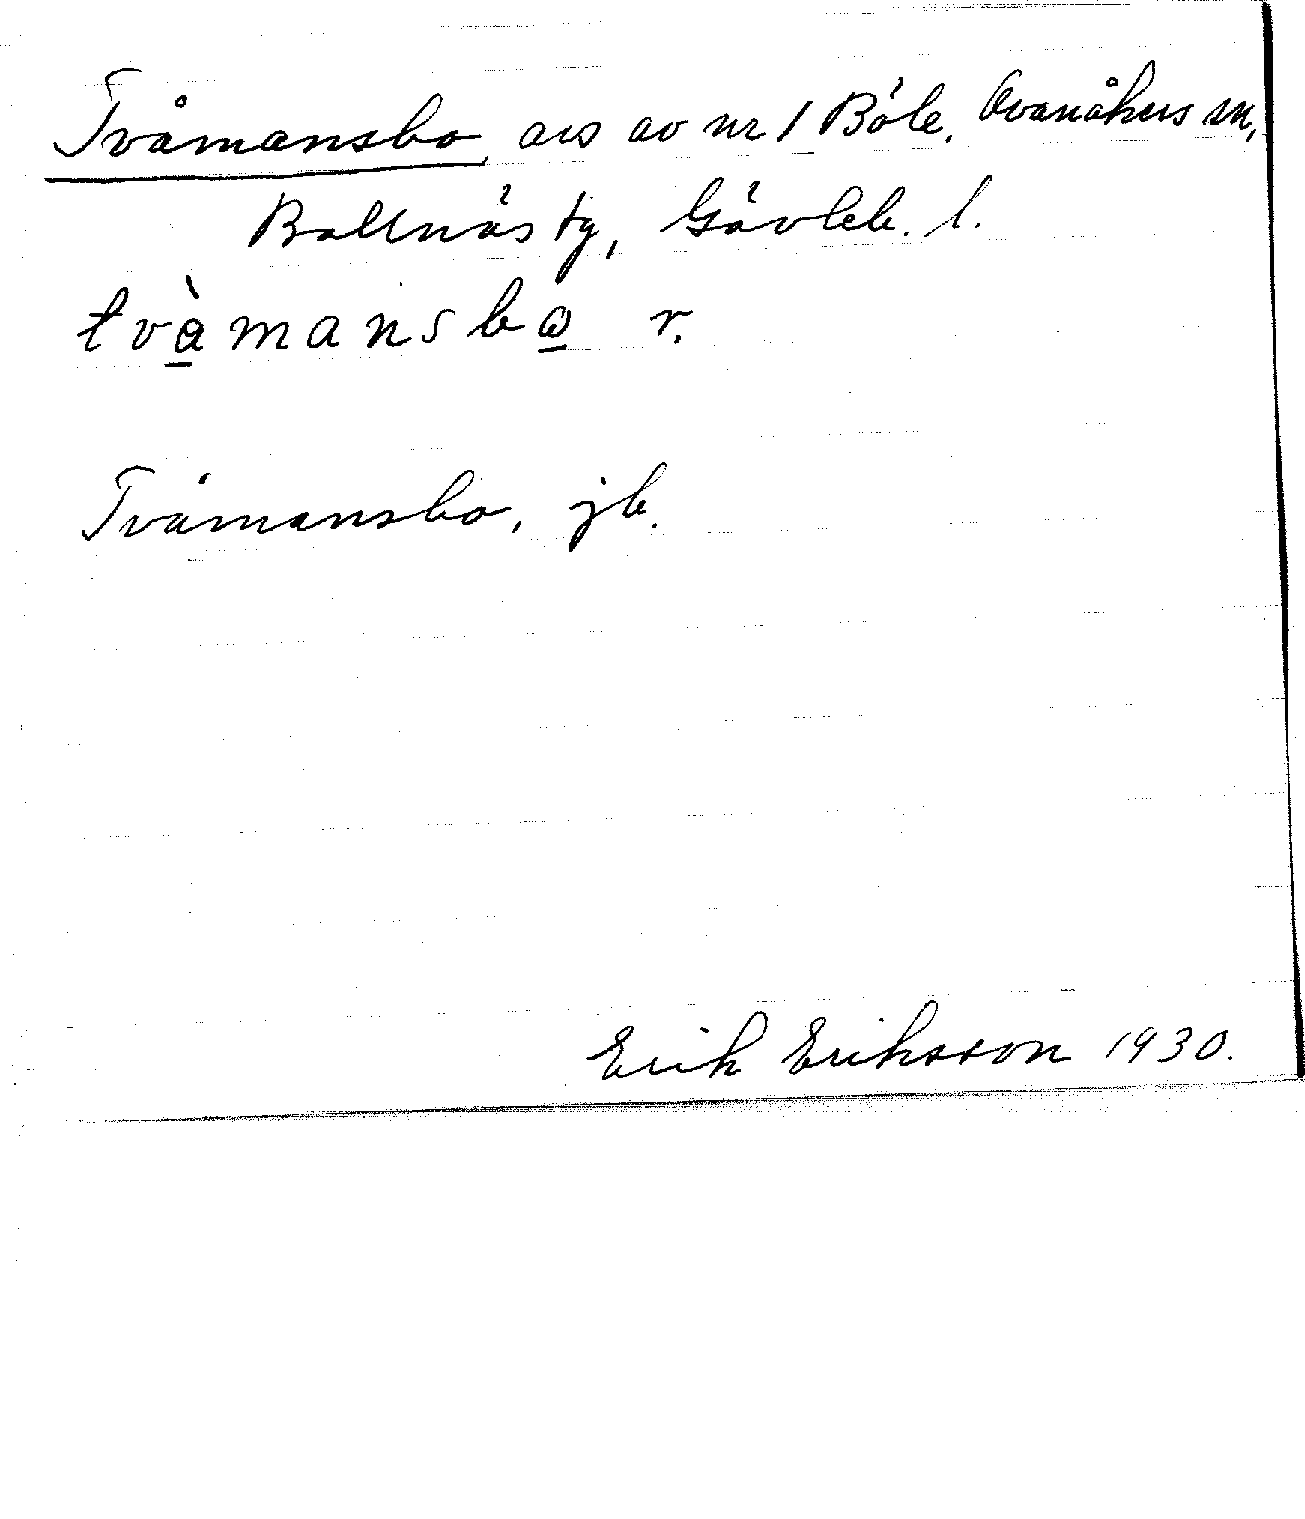 Tvåmansbo, avs av nr 1 Böle, Ovanåkers sn,
Bollnäs tg, Gävleb. l.
tvåmansbo r.
Tvåmansbo, jb.
Erik Eriksson 1930.